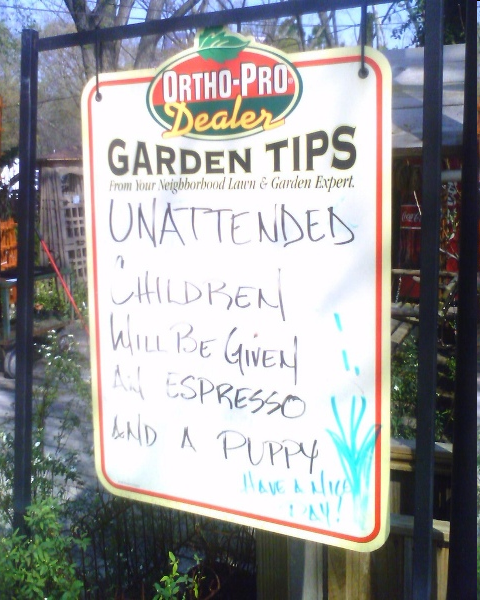 ORTHO-PRO®
Dealer
GARDEN TIPS
From Your Neighborhood Lawn & Garden Expert.
UNATTENDED
CHILDREN
WILL BE GIVEN
AN ESPRESSO
AND A PUPPY
HAVE A NICE
DAY!